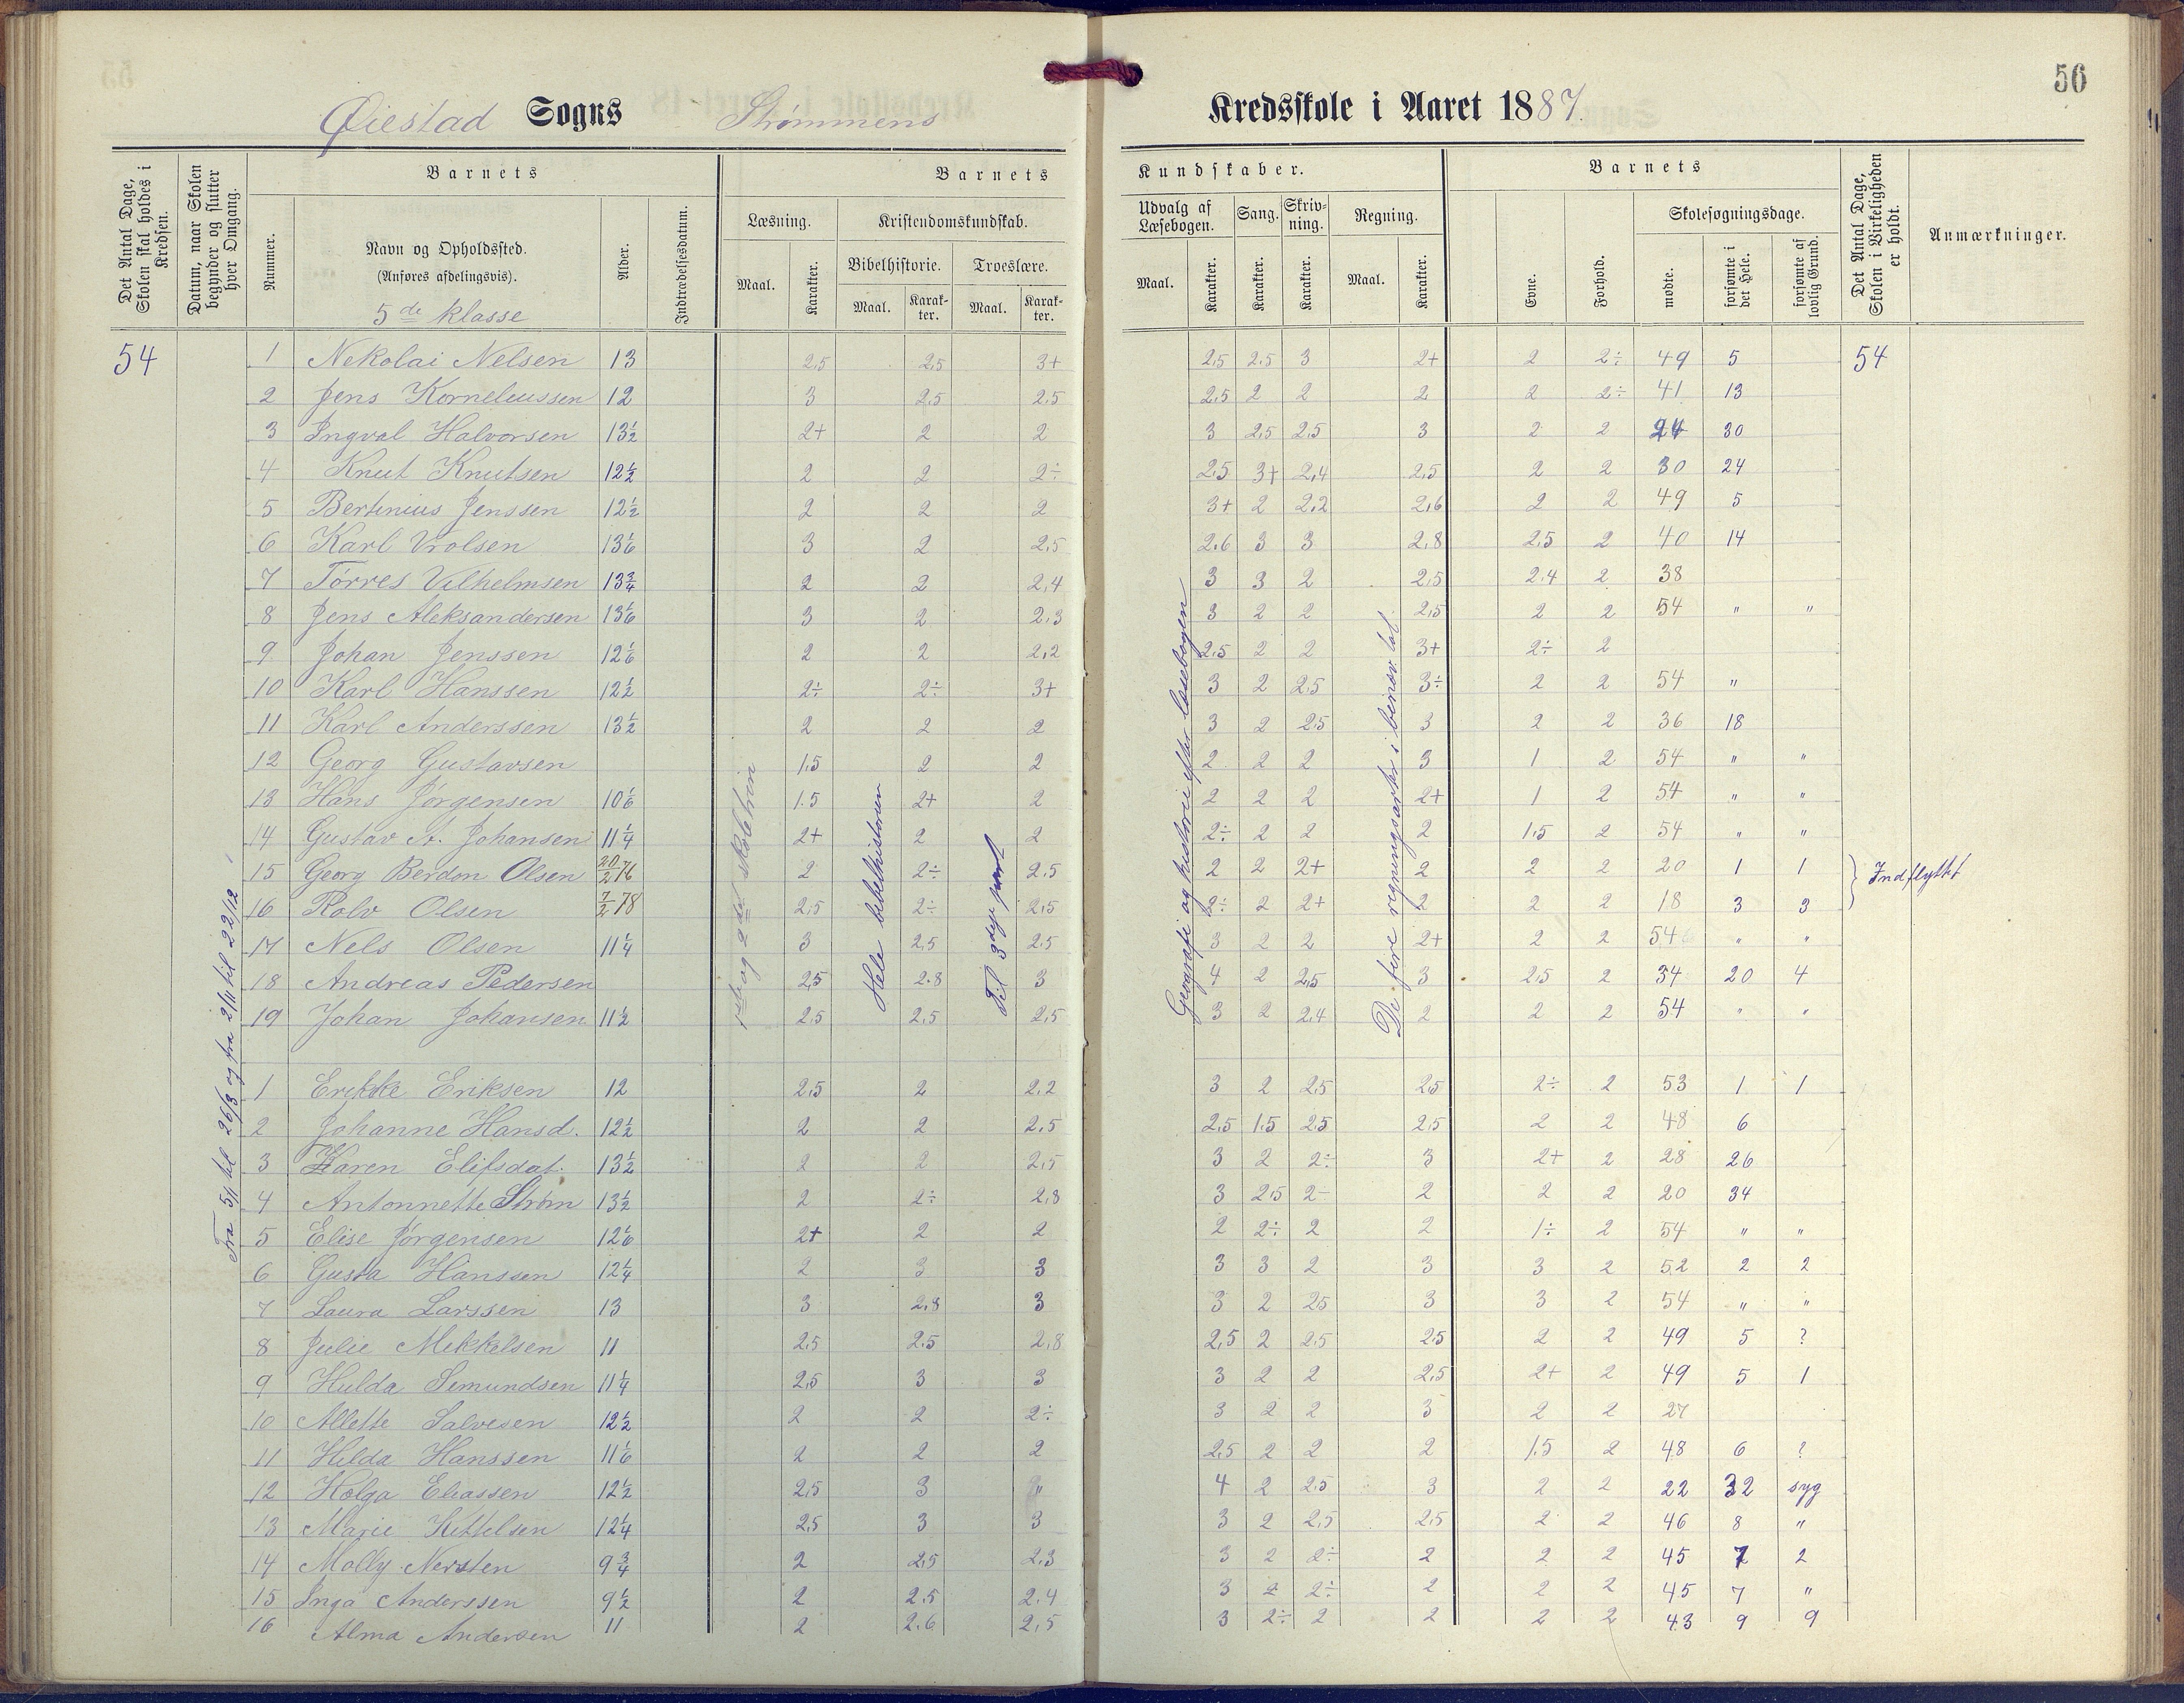 56
Øiestad Sogns Strømmens Kredsskole i Aaret 1887.
Det Antal Dage, Skolen skal holdes i Kredsen.
Datum, naar Skolen begynder og slutter hver Omgang.
Barnets
Nummer.
Navn og Opholdssted.
(Anføres afdelingsvis).
5de klasse
Alder.
Indtrædelsesdatum.
Barnets Kundskaber.
Læsning.
Maal. Karakter.
Kristendomskundskab.
Bibelhistorie. Troeslære.
Maal. Karakter. Maal. Karakter.
Udvalg af Læsebogen. Sang. Skrivning. Regning.
Maal. Karakter. Karakter. Karakter. Maal. Karakter.
Barnets
Evne. Forhold.
Skolesøgningsdage.
mødte. forsømte i det Hele. forsømte af lovlig Grund.
Det Antal Dage, Skolen i Virkeligheden er holdt.
Anmærkninger.
54 1 Nekolai Nelsen 13 2,5 2,5 3+ 2,5 2,5 3 2+ 2 2÷ 49 5 54
2 Jens Korneleussen 12 3 2,5 2,5 2,5 2 2 2 2 2÷ 41 13
3 Ingval Halvorsen 13½ 2+ 2 2 3 2,5 2,5 3 2 2 24 30
4 Knut Knutsen 12½ 2 2 2÷ 2,5 3+ 2,4 2,5 2 2 30 24
5 Bertinius Jenssen 12½ 2 2 2 3+ 2 2,2 2,6 2 2 49 5
6 Karl Vrolsen 13 1/6 3 2 2,5 2,6 3 3 2,8 2,5 2 40 14
7 Tørres Vilhelmsen 13¾ 2 2 2,4 3 3 2 2,5 2,4 2 38
8 Jens Aleksandersen 13 1/6 3 2 2,3 3 2 2 2,5 2 2 54 " "
9 Johan Jenssen 12 1/6 2 2 2,2 2,5 2 2 3+ 2÷ 2
10 Karl Hanssen 12½ 2÷ 2÷ 3+ 3 2 2,5 3÷ 2 2 54 "
11 Karl Anderssen 13½ 2 2 2 3 2 2,5 3 2 2 36 18
12 Georg Gustavsen 1,5 2 2 2 2 2 3 1 2 54 " "
13 Hans Jørgensen 10 1/6 1,5 2+ 2 2 2 2 2+ 1 2 54 " "
14 Gustav A. Johansen 11¼ 2+ 2 2 2÷ 2 2 2 1,5 2 54 " "
15 Georg Berdon Olsen 20/2 76 2 2÷ 2,5 2 2 2+ 2 2 2 20 1 1 Indflyttet
16 Rolv Olsen 7/2 78 2,5 2÷ 2,5 2÷ 2 2+ 2 2 2 18 3 3
17 Nels Olsen 11¼ 3 2,5 2,5 3 2 2 2+ 2 2 54 " "
18 Andreas Pedersen 2,5 2,8 3 4 2 2,5 3 2,5 2 34 20 4
19 Johan Johansen 11½ 2,5 2,5 2,5 3 2 2,4 2 2 2 54 " "
Fra 5/1 til 26/3 og fra 2/11 til 22/12
1ste og 2den skoletrin
Hele bibelhistorien
Til 3dje part
Geografi og historie efter læsebogen
De fire regningsarter i benævn. tal.
1 Erikke Eriksen 12 2,5 2 2,2 3 2 2,5 2,5 2÷ 2 53 1 1
2 Johanne Hansd. 12½ 2 2 2,5 2,5 1,5 2,5 2,5 2 2 48 6
3 Karen Elifsdat. 13½ 2 2 2,5 3 2 2÷ 3 2+ 2 28 26
4 Antonnette Strøm 13½ 2 2÷ 2,8 3 2,5 2- 2 2 2 20 34
5 Elise Jørgensen 12 1/6 2+ 2 2 2 2÷ 2 2 1÷ 2 54 " "
6 Gusta Hanssen 12¼ 2 3 3 3 3 2 3 3 2 52 2 2
7 Laura Larssen 13 3 2,8 3 3 2 2,5 3 3 2 54 " "
8 Julie Mekkelsen 11 2,5 2,5 2,8 2,5 2 2,5 2,5 2 2 49 5 ?
9 Hulda Semundsen 11¼ 2,5 3 3 3 2 2 2,5 2+ 2 49 5 1
10 Allette Salvesen 12½ 2 2 2÷ 3 2 2 3 2 2 27
11 Helda Hanssen 11 1/6 2 2 2 2,5 2 2 2 1,5 2 48 6 ?
12 Helga Eliassen 12½ 2,5 3 " 4 2 2,5 3 2 2 22 32 syg
13 Marie Kettelsen 12¼ 2,5 3 3 3 2 2,5 2,5 2 2 46 8 "
14 Molly Nersten 9¾ 2 2,5 2,3 3 2 2÷ 2 2 2 45 7 2
15 Inga Anderssen 9½ 2 2,5 2,4 3 2 2÷ 2 2 2 45 7 "
16 Alma Andersen 11 2 2,6 2,5 3 2÷ 2 2 2 2 43 9 9